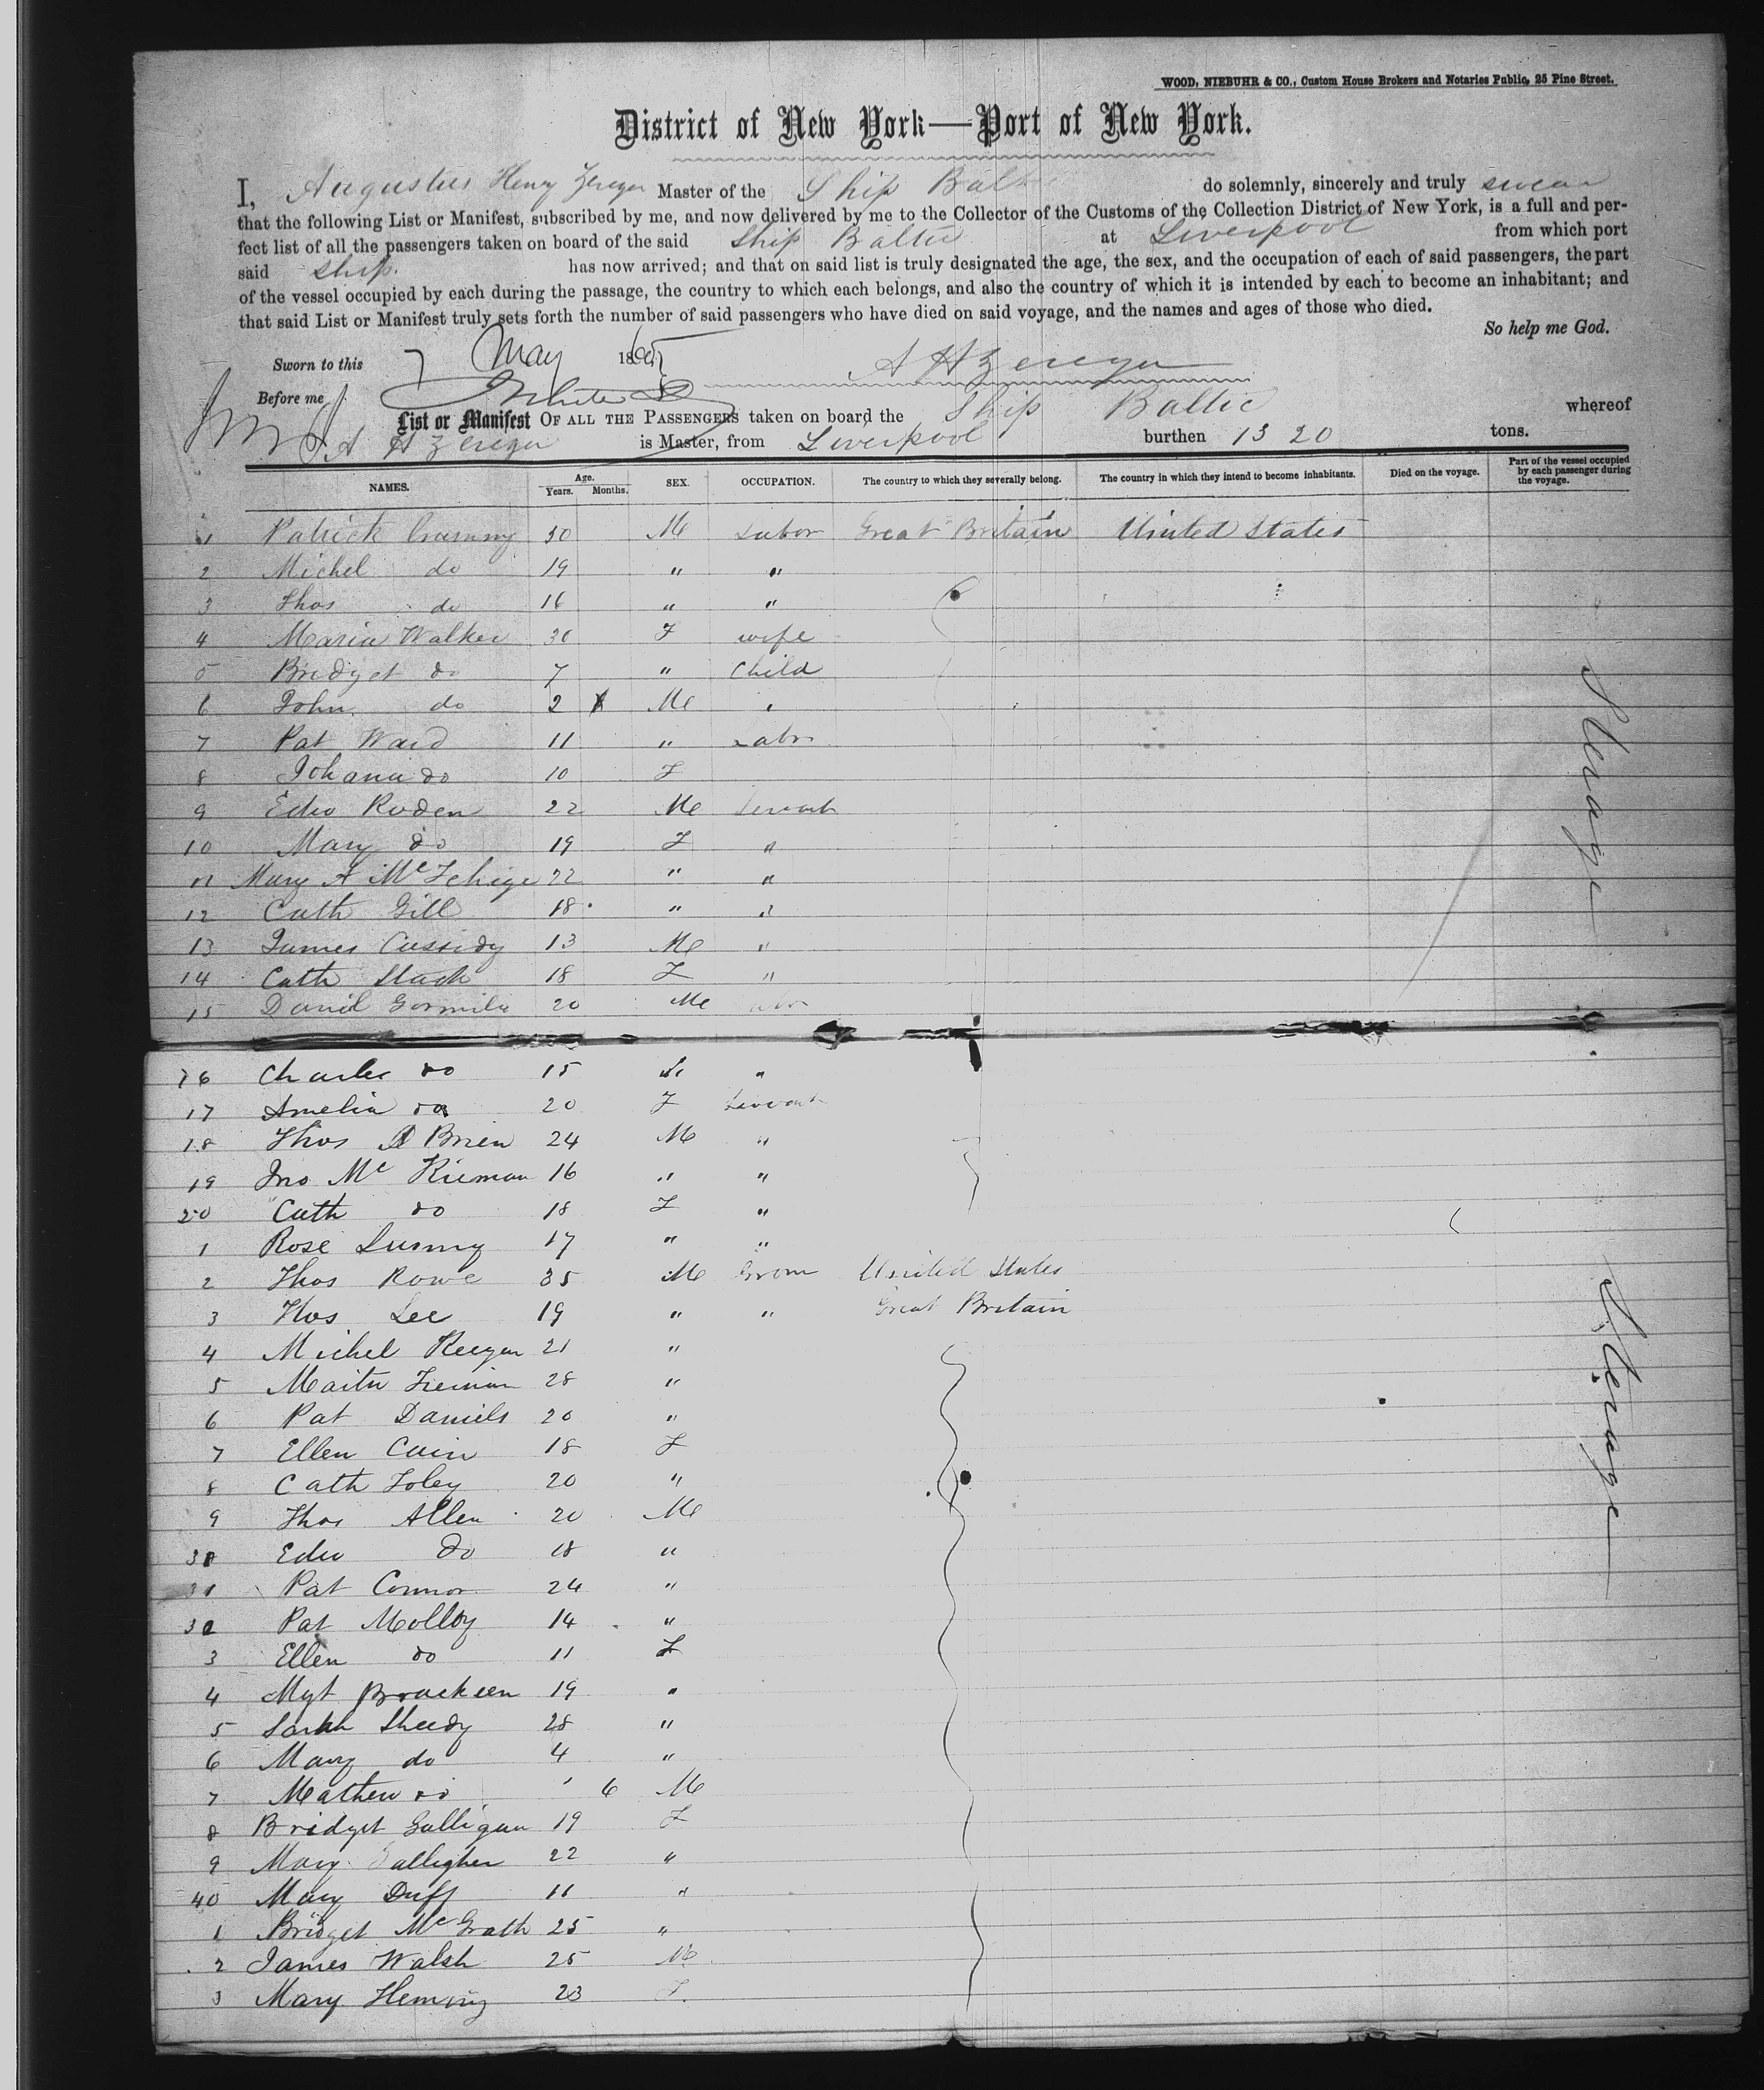 WOOD, NIEBUHR & CO., Custom House Brokers and Notaries Public, 25 Pine Street.
District of New York—Port of New York.
I, Augustus Henry Zerega Master of the Ship Baltic do solemnly, sincerely and truly swear
that the following List or Manifest, subscribed by me, and now delivered by me to the Collector of the Customs of the Collection District of New York, is a full and per-
fect list of all the passengers taken on board of the said Ship Baltic at Liverpool from which port
said ship. has now arrived; and that on said list is truly designated the age, the sex, and the occupation of each of said passengers, the part
of the vessel occupied by each during the passage, the country to which each belongs, and also the country of which it is intended by each to become an inhabitant; and
that said List or Manifest truly sets forth the number of said passengers who have died on said voyage, and the names and ages of those who died.
So help me God.
Sworn to this 7 May 1865 A H Zerega
Before me
List or Manifest OF ALL THE PASSENGERS taken on board the Ship Baltic whereof
A H Zerega is Master, from Liverpool burthen 1320 tons.
NAMES. Age. Years. Months. SEX. OCCUPATION. The country to which they severally belong. The country in which they intend to become inhabitants. Died on the voyage. Part of the vessel occupied by each passenger during the voyage.
1 Patrick 30 M Labor Great Britain United States
2 Michel do 19 " "
3 Thos do 16 " "
4 Maria Walker 30 F wife
5 Bridget do 7 " Child
6 John do 2 M "
7 Pat Ward 11 " Labr
8 Johana do 10 F
9 Edw Roden 22 M Servant
10 Mary do 19 F "
11 Mary A 22 " "
12 Cath Gill 18 " "
13 James Cassidy 13 M "
14 Cath Slack 18 F "
15 David 20 M Labr
Steerage
16 Charles do 15 M "
17 Amelia do 20 F Servant
18 Thos O Brien 24 M "
19 Jno Mc Kiernan 16 " "
20 Cath do 18 F "
1 Rose 17 " "
2 Thos Rowe 35 M Grom United States
3 Thos Lee 19 " " Great Britain
4 Michel Keegan 21 "
5 28 "
6 Pat Daniels 20 "
7 Ellen Cain 18 F
8 Cath Foley 20 "
9 Thos Allen 20 M
30 Edw do 18 "
31 Pat Connor 24 "
32 Pat Molloy 14 "
3 Ellen do 11 F
4 Mgt Brackeen 19 "
5 Sarah Sheedy 28 "
6 Mary do 4 "
7 Mathew do 6 M
8 Bridget Galligan 19 F
9 Mary Galligher 22 "
40 Mary Duff 11 "
1 Bridget McGrath 25 "
2 James Walsh 25 M
3 Mary Fleming 23 F
Steerage